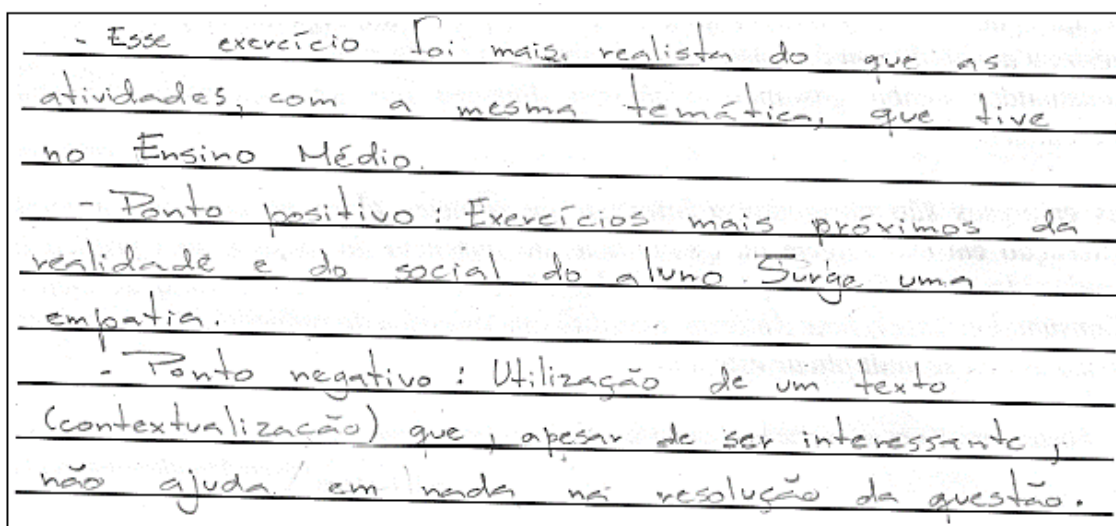 - Esse exercício foi mais realista do que as
atividades, com a mesma temática, que tive
no Ensino Médio.
- Ponto positivo Exercícios mais próximos da
realidade e do social do aluno. Surge uma
empatia.
- Ponto negativo: Utilização de um texto
(contextualização) que, apesar de ser interessante,
não ajuda em nada na resolução da questão.